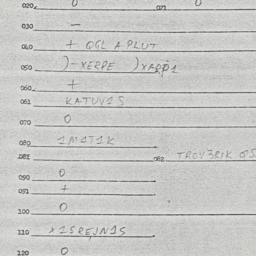 020 0 021 0
030 –
040 + OGL A PLUT
050 )-XERPE )XARP1
060 +
061 KATUV1S
070 0
080 1MAT1K
081 082 TROV3RIK
090 0
091 +
100 0
110 X1SREJN1S
120 0